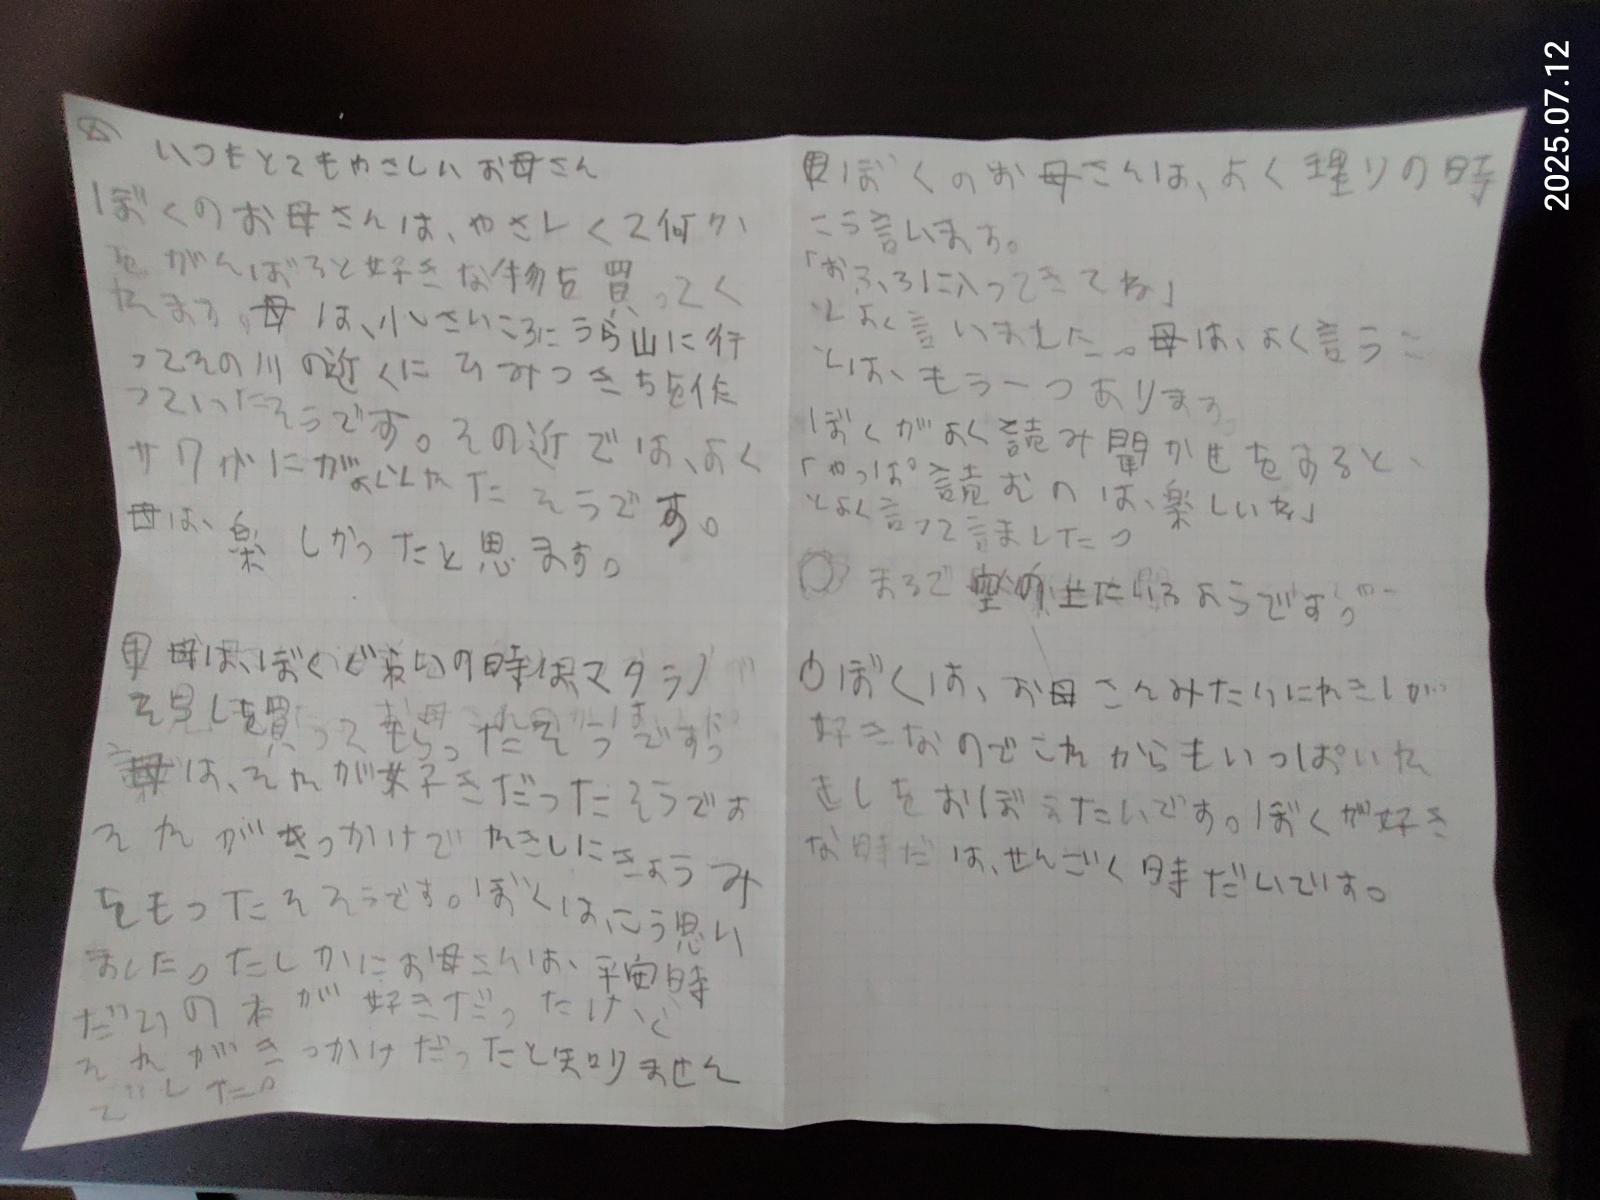 いつもとてもやさしいお母さん
ぼくのお母さんは、やさしくて何か
をがんばると好きな物を買ってく
れます。母は、小さいころにうら山に行
ってその川の近くにひみつきちを作
っていたそうです。その近では、よく
サワがにがよくとれたそうです。
母は、楽しかったと思ます。
母は、ぼくぐらいの時はマクラノ
を買ってもらったそうです。
母は、それが好きだったそうです
それがきっかけでれきしにきょうみ
をもったそそうです。ぼくは、こう思い
ました。たしかにお母さんは、平安時
だいの本が好きだったけど
それがきっかけだったと知りません
でした。
ぼくのお母さんは、よくの時
こう言います。
「おふろに入ってきてね」
とよく言いました。母は、よく言うこ
とは、もう一つあります。
ぼくがよく読み聞かせをすると、
「やっぱ読むのは、楽しいね」
とよく言って言ました。
まるでいるようです。
ぼくは、お母さんみたいにれきしが
好きなのでこれからもいっぱいれ
きしをおぼえたいです。ぼくが好き
な時だは、せんごく時だいです。
2025.07.12